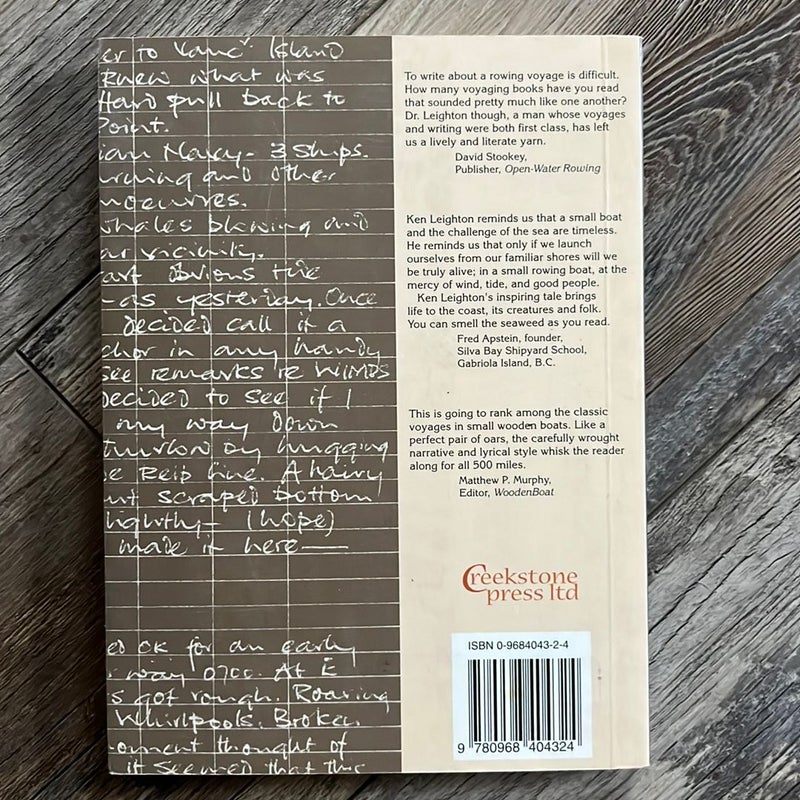 er to Vanc. Island
Knew what was
Hard pull back to
Point.
ian Navy - 3 Ships.
urning and other
noeuvres.
whales blowing and
ar vicinity.
art obvious tide
as yesterday. Once
decided call it a
chor in any handy
see remarks re WINDS
Decided to see if I
my way down
by hugging
e Reid Line. A hairy
scraped bottom
lightly - (hope)
made it here —
ed OK for an early
way 0700. At E
s got rough. Roaring
Whirlpools. Broken
oment thought of
it seemed that this
To write about a rowing voyage is difficult.
How many voyaging books have you read
that sounded pretty much like one another?
Dr. Leighton though, a man whose voyages
and writing were both first class, has left
us a lively and literate yarn.
David Stookey,
Publisher, Open-Water Rowing
Ken Leighton reminds us that a small boat
and the challenge of the sea are timeless.
He reminds us that only if we launch
ourselves from our familiar shores will we
be truly alive; in a small rowing boat, at the
mercy of wind, tide, and good people.
Ken Leighton's inspiring tale brings
life to the coast, its creatures and folk.
You can smell the seaweed as you read.
Fred Apstein, founder,
Silva Bay Shipyard School,
Gabriola Island, B.C.
This is going to rank among the classic
voyages in small wooden boats. Like a
perfect pair of oars, the carefully wrought
narrative and lyrical style whisk the reader
along for all 500 miles.
Matthew P. Murphy,
Editor, WoodenBoat
Creekstone
press ltd
ISBN 0-9684043-2-4
9 780968 404324